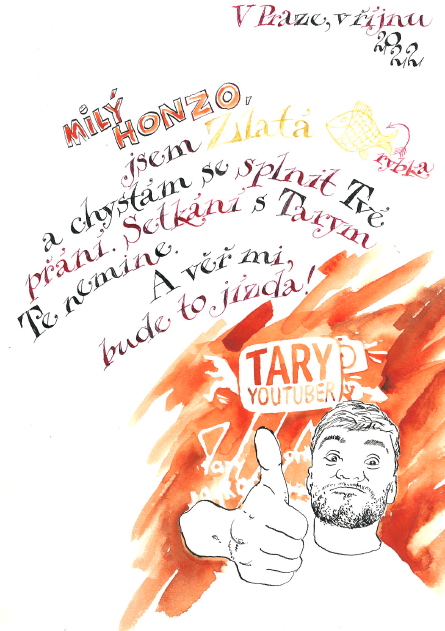 V Praze, v říjnu
2022
MILÝ
HONZO,
jsem Zlatá
rybka
a chystám se splnit Tvé
přání. Setkání s Tarym
Te nemine.
A věř mi,
bude to jízda!
TARY
YOUTUBER